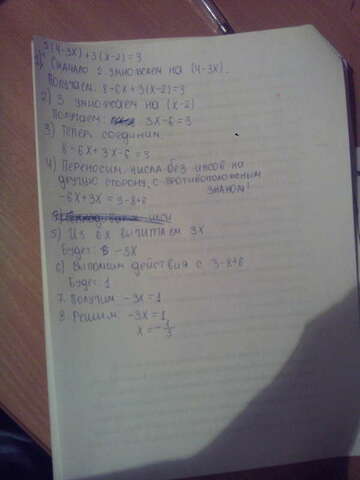 2(4-3x)+3(x-2)=3
1) Сначало 2 умножаем на (4-3x).
Получаем: 8-6x+3(x-2)=3
2) 3 умножаем на (x-2)
Получаем: 3x-6=3
3) Теперь соединим.
8-6x+3x-6=3
4) Переносим числа без иксов на
другую сторону, с противоположным
знаком!
-6x+3x=3-8+6
5) Из 6x вычитаем 3x
Будет: -3x
6) Выполним действия с 3-8+6
Будет: 1
7. Получим -3x=1
8. Решим -3x=1
x=-1/3